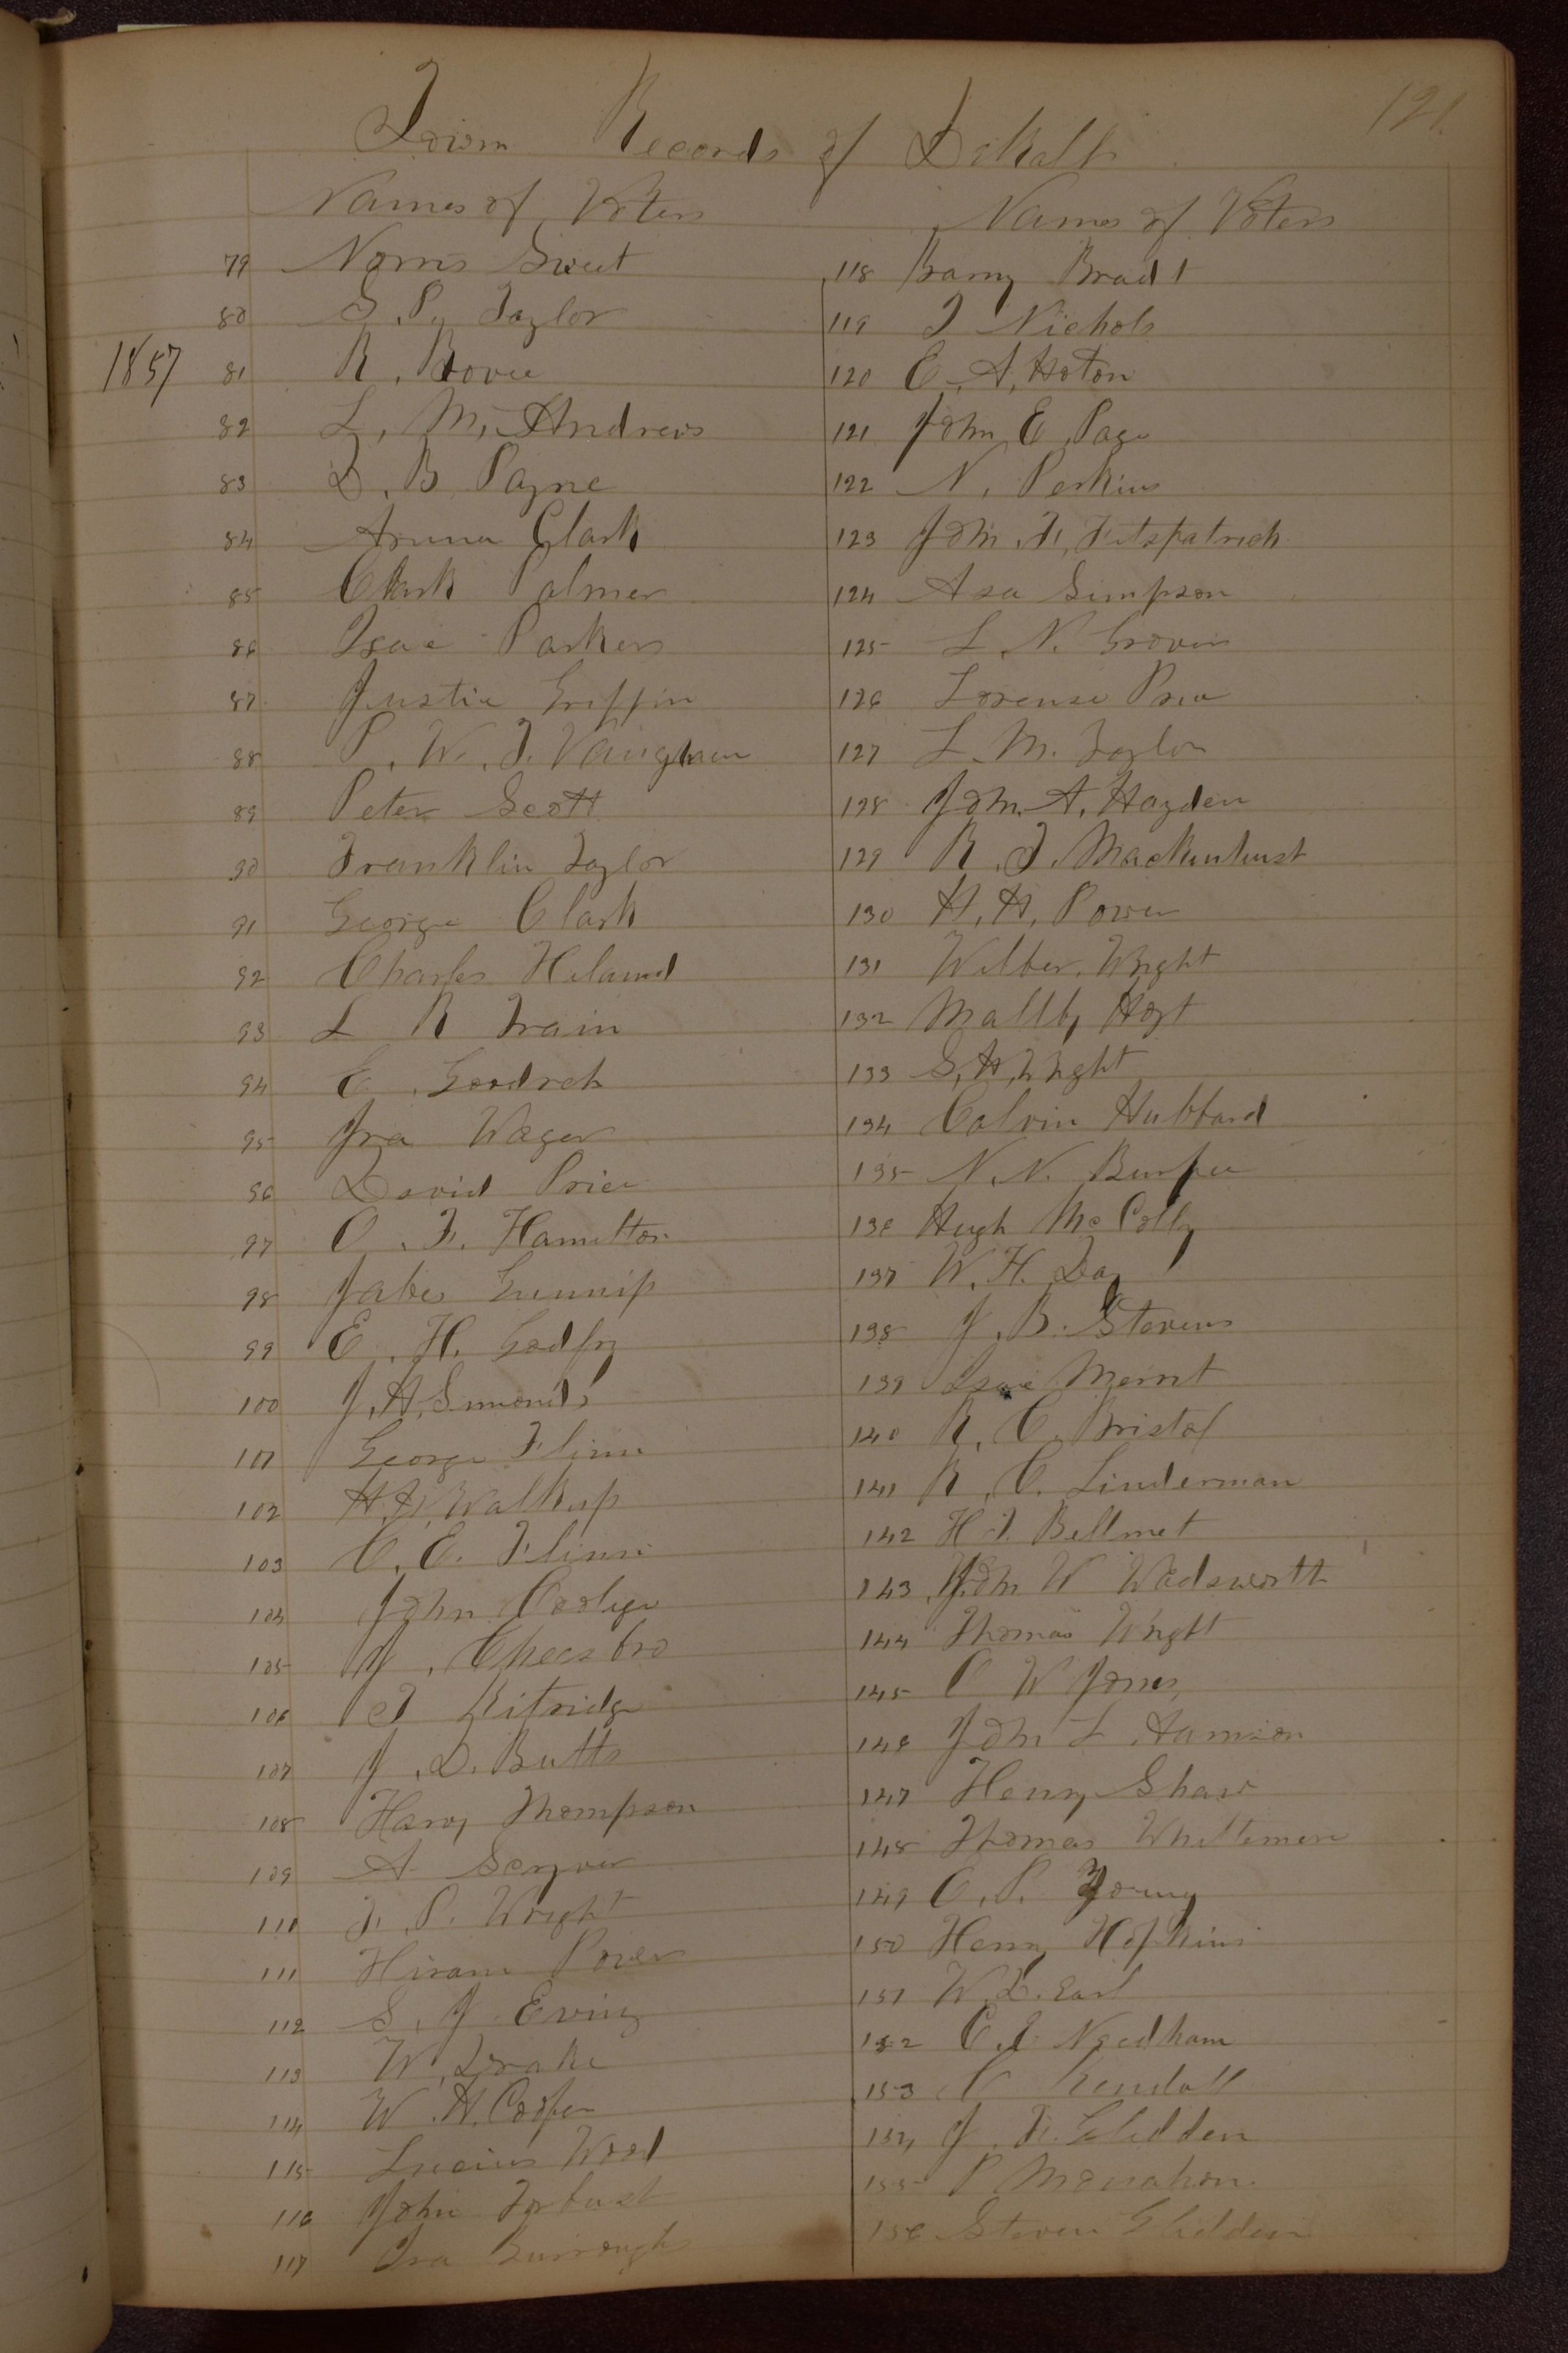 121.
Town Records of DeKalb
Names of Voters
79 Norris Sweet
80 S. P. Taylor
1857 81 R. Bovee
82 L. M. Andrews
83 D. B Payne
84 Aruna Clark
85 Clark Palmer
86 Isac Parkers
87 Justin Griffin
88 P. W. T. Vaughan
89 Peter Scott
90 Franklin Taylor
91 George Clark
92 Charles Hiland
93 L R Train
94 E. Goodrch
95 Ira Wager
96 David Price
97 O. F. Hamilton
98 Jabes Gunnip
99 E. H. Godfry
100 J. H. Simonds
101 George Flinn
102 H. F. Walkup
103 C. E. Flinn
104 John Cooleye
105 J. Cheesbro
106 T Kitridge
107 J. D. Butts
108 Harvy Thompson
109 A Scryver
110 F. P. Wright
111 Hiram Power
112 S. J. Ewing
113 W. Drake
114 W. H. Cooper
115 Lucius Wood
116 John Forbust
117 Ira Burroughs
Names of Voters
118 Barny Bradt
119 T Nichols
120 E. A. Hoton
121 John E. Page
122 N. Perkins
123 John F. Fitzpatrick
124 Asa Simpson
125 L. N. Grover
126 Lorenso Price
127 L. M. Taylor
128 John A. Hayden
129 R. T. Mackinhust
130 H. H. Power
131 Wilber Wright
132 Mallby Hoyt
133 S. H. Wright
134 Calvin Hubbard
135 N. N. Burpee
136 Hugh Mc Colly
137 W. H. Day
138 J. B. Stevens
139 Isac Merrit
140 R. C. Bristol
141 R. C. Linderman
142 H. T. Bellmet
143 John W Wadsworth
144 Thomas Wright
145 O W Jones
146 John L Harrison
147 Henry Shaw
148 Thomas Whittemore
149 C. P. Young
150 Henry Hopkins
151 W. D. Earl
152 C. E. Needham
153 C Kendall
154 J. F. Glidden
155 P Monahon
156 Steven Glidden